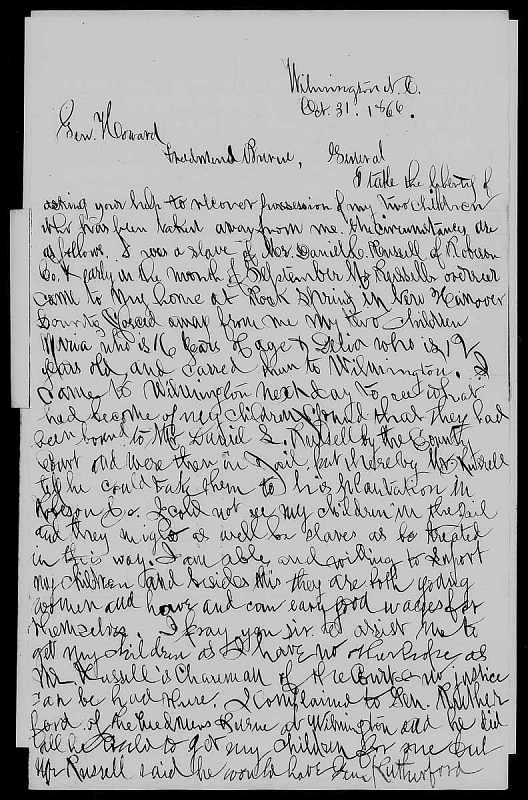 Wilmington N. C.
Oct. 31. 1866.
Gen. Howard
Freedmens Bureue, General
I take the liberty of
asking your help to recover possession of my two children
who has been taken away from me. the circumstances are
as follows. I was a slave of Mr. Daniel L. Russell of Robeson
Co. & early in the month of September Mr Russells overseer
came to my home at Rock Spring in New Hanover
County, forced away from me my two children
who is 16 years of age & who is 19
years old and carred them to Wilmington. I
came to Wilmington next day to see what
had become of my children I found that they had
been bound to Mr. Daniel L. Russell by the County
Court and were then in Jail, put there by Mr. Russell
till he could take them to his plantation in
Robeson Co. I cold not see my children in the Jail
and they might as well be slaves as be treated
in this way. I am able and willing to suport
my children and besides this they are both young
women and have and can earn good wages for
themselves. I pray you sir to assist me to
get my children as I have no other hope as
Mr Russell is Chareman of the Court & no justice
can be had there. I complained to Gen. Ruther
ford of the Freedmens Burue at Wilmington and he did
all he could to get my children for me but
Mr Russell said he would have Genl Rutherford